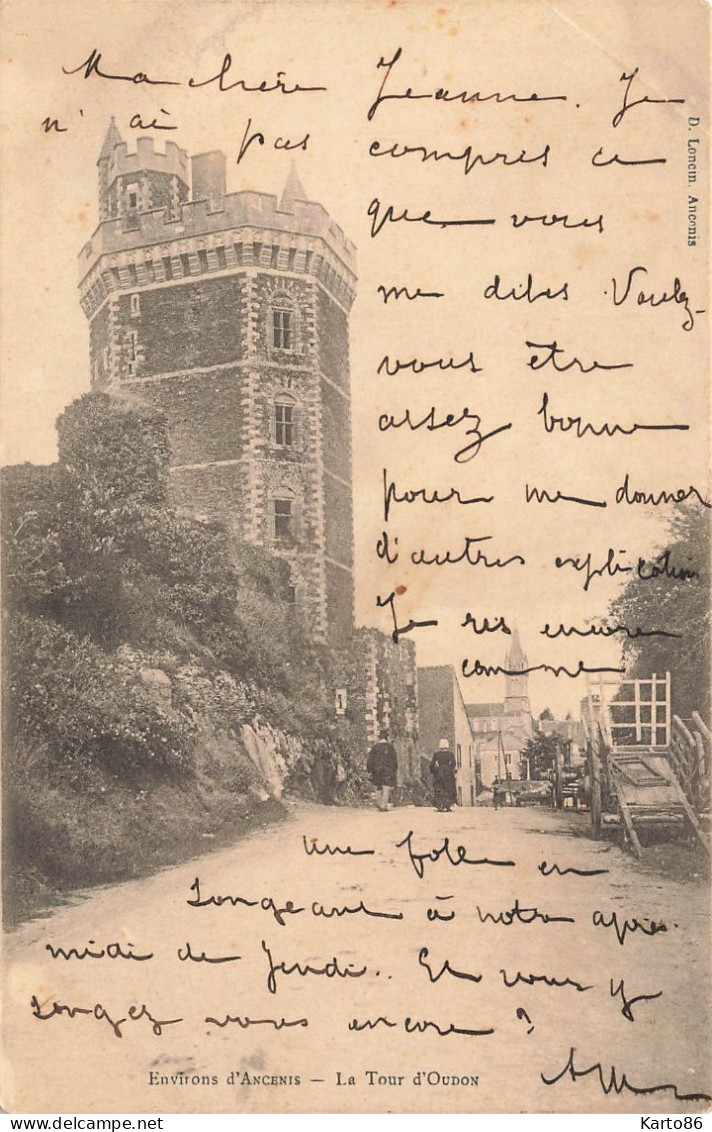 Ma chère Jeanne. Je
n'ai pas compris ce
que vous
me dites Voulez-
vous être
assez bonne
pour me donner
d'autres explication
Je ris encore
comme
Une folle en
songeant à notre après.
midi de Jeudi.. Et vous y
songez vous encore ?
D. Loncin. Ancenis
Environs d'Ancenis — La Tour d'Oudon
Karto86